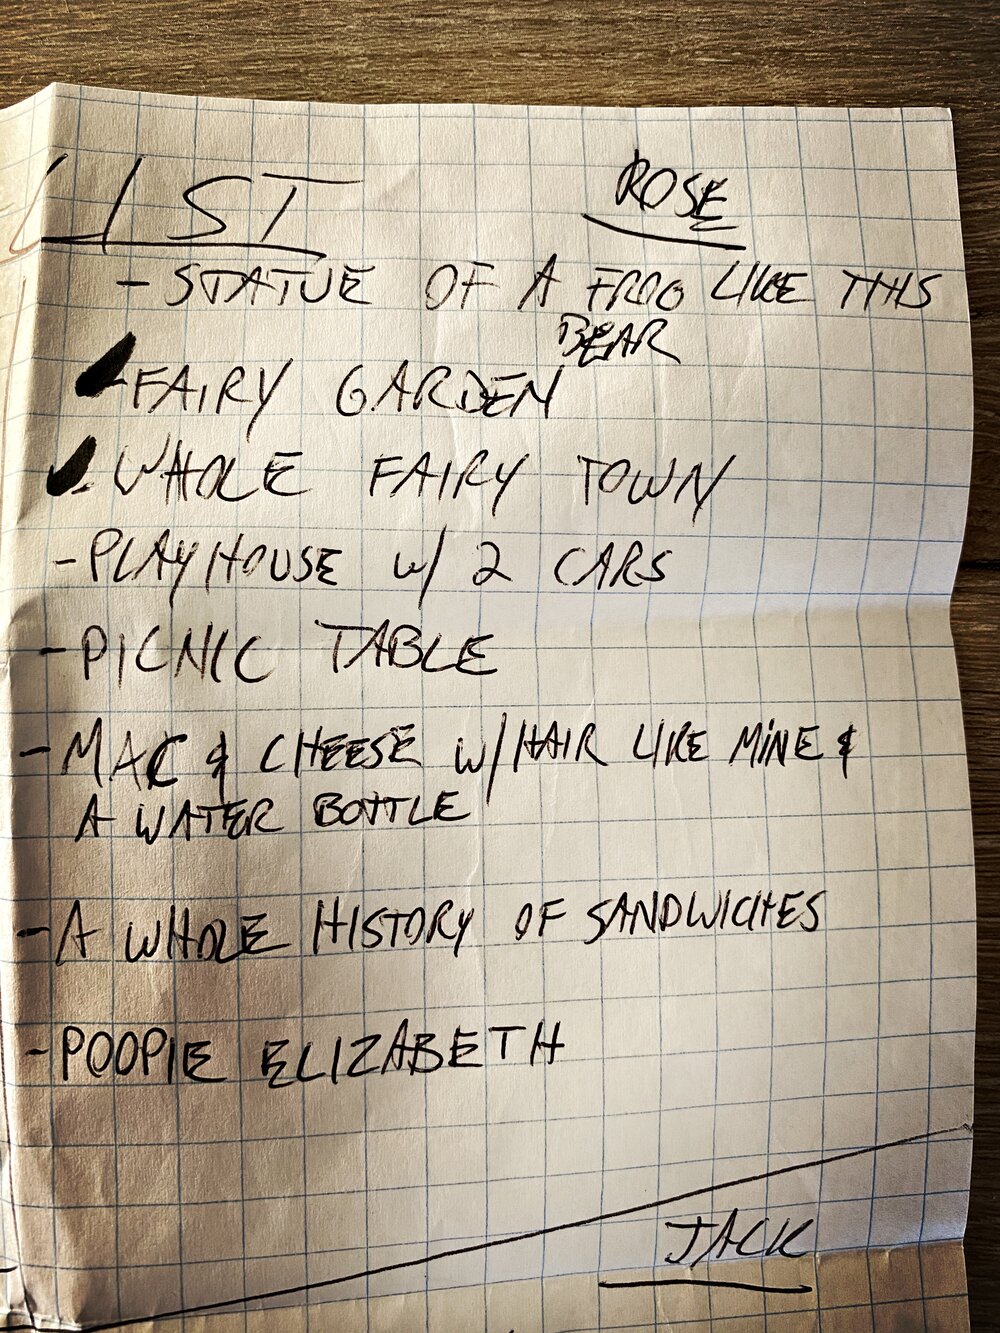 LIST
ROSE
- STATUE OF A FROG LIKE THIS
BEAR
- FAIRY GARDEN
- WHOLE FAIRY TOWN
- PLAYHOUSE w/ 2 CARS
- PICNIC TABLE
- MAC & CHEESE w/ HAIR LIKE MINE &
A WATER BOTTLE
- A WHOLE HISTORY OF SANDWICHES
- POOPIE ELIZABETH
JACK